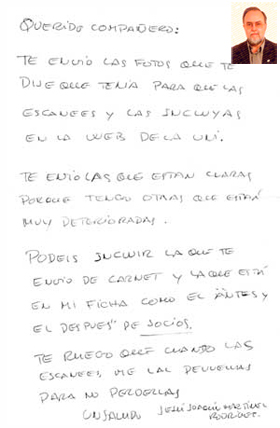 QUERIDO COMPAÑERO:
TE ENVIO LAS FOTOS QUE TE
DIJE QUE TENÍA PARA QUE LAS
ESCANEES Y LAS INCLUYAS
EN LA WEB DE LA UNI.
TE ENVIO LAS QUE ESTAN CLARAS
PORQUE TENGO OTRAS QUE ESTÁN
MUY DETERIORADAS.
PODEIS INCLUIR LA QUE TE
ENVIO DE CARNET Y LA QUE ESTÁ
EN MI FICHA COMO EL "ANTES Y
EL DESPUES" DE SOCIOS.
TE RUEGO QUE CUANDO LAS
ESCANEES ME LAS DEVUELVAS
PARA NO PERDERLAS
UN SALUDO JESÚS JOAQUÍN MARTÍNEZ
RODRÍGUEZ.